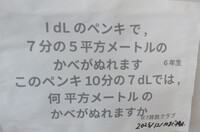 １dLのペンキで，
７分の５平方メートルの
かべがぬれます
６年生
このペンキ10分の７dLでは，
何 平方メートル の
かべがぬれますか